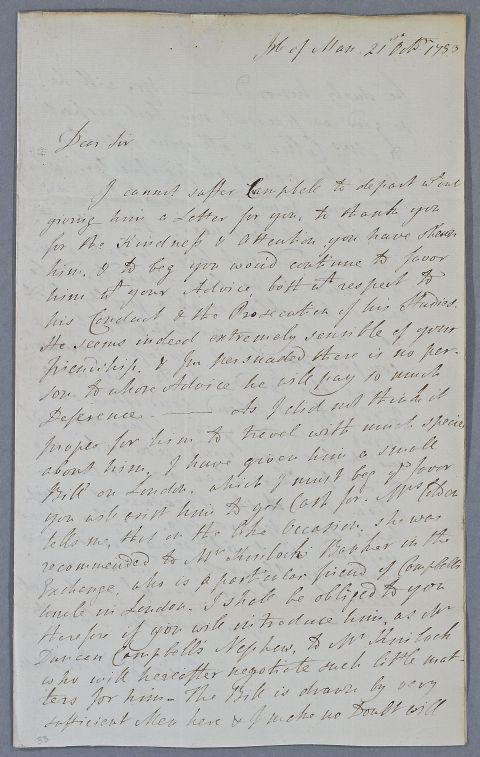 Isle of Man 21st Octr. 1788
Dear Sir
I cannot suffer Campbell to depart wt. out
giving him a Letter for you, to thank you
for the Kindness & Attention, you have shewn
him, & to beg you would continue to favor
him wt. your Advice, both wt. respect to
his Conduct & the Prosecution of his Studies.
He seems indeed extremely sensible of your
friendship, & I'm persuaded there is no per-
son to whose Advice he will pay so much
Deference. —— As I did not think it
proper for him to travel with much specie
about him, I have given him a small
Bill on London, which I must beg yr. favor
you will assist him to get Cash for. Mrs
tells me, that on the like Occasion, she was
recommended to Mr. Kinloch Banker in the
Exchange, who is a particular friend of Campbell's
Uncle in London. I shall be obliged to you
therefore if you will introduce him, as Mr.
Duncan Campbell's Nephew, to Mr. Kinloch
who will hereafter negotiate such little mat-
ters for him — The Bill is drawn by very
sufficient Men here & I make no Doubt will
33